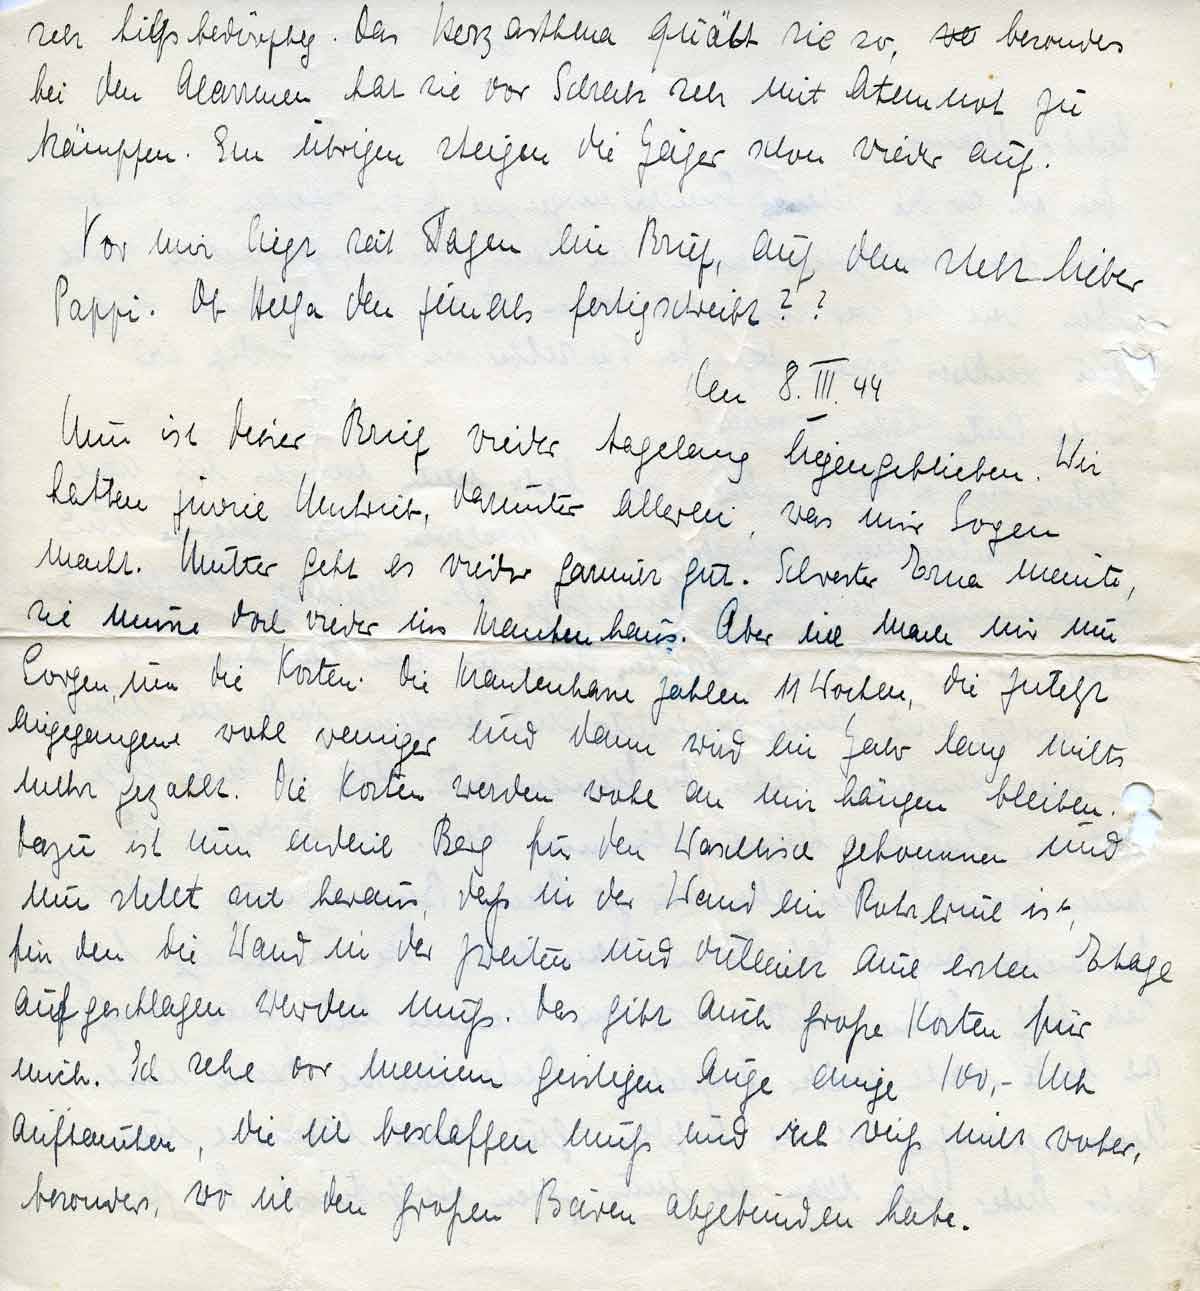 sehr hilfsbedürftig. Das Herzasthma quält sie so, besonders
bei den Alarmen hat sie vor Schreck sehr mit Atemnot zu
kämpfen. Im übrigen steigen die Gäger schon wieder auf.
Vor mir liegt seit Tagen ein Brief, auf dem steht lieber
Pappi. Ob Helga den jemals fertigschreibt??
Den 8. III. 44
Nun ist dieser Brief wieder tagelang liegengeblieben. Wir
hatten soviel Umtrieb, darunter allerlei, was mir Sorgen
macht. Mutter geht es wieder garnicht gut. Schwester Erna meinte,
sie müsse doch wieder ins Krankenhaus. Aber ich mach mir nun
Sorgen, um die Kosten. Die Krankenkasse zahlen 11 Wochen, die zuletzt
angegangene wohl weniger und dann wird ein Jahr lang nichts
mehr gezahlt. Die Kosten werden wohl an mir hängen bleiben.
Dazu ist nun endlich Berg für den Waschtisch gekommen und
nun stellt sich heraus, daß in der Wand ein Rohrbruch ist,
für den die Wand in der zweiten und vielleicht auch ersten Etage
aufgeschlagen werden muß. Das gibt auch große Kosten für
mich. Ich sehe vor meinem geistigen Auge einige 100,- Mk
auftauchen, die ich beschaffen muß und ich weiß nicht woher,
besonders, wo ich den großen Bären abgebunden habe.